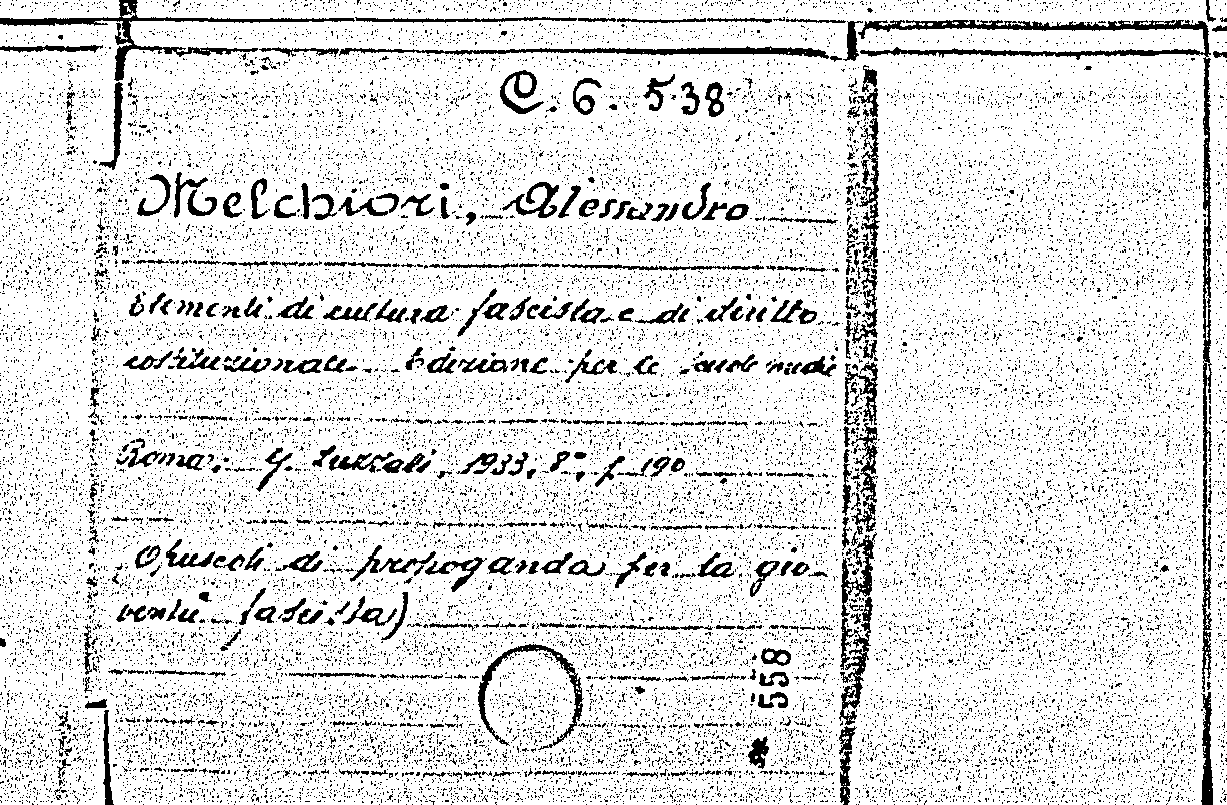 C. 6. 538
Melchiori, Alessandro
Elementi di cultura fascista e di diritto
costituzionale. Edizione per le scuole medie
Roma: G. Luzzati, 1933, 8°, p. 190
Opuscoli di propoganda per la gio-
ventù fascista)
* 558